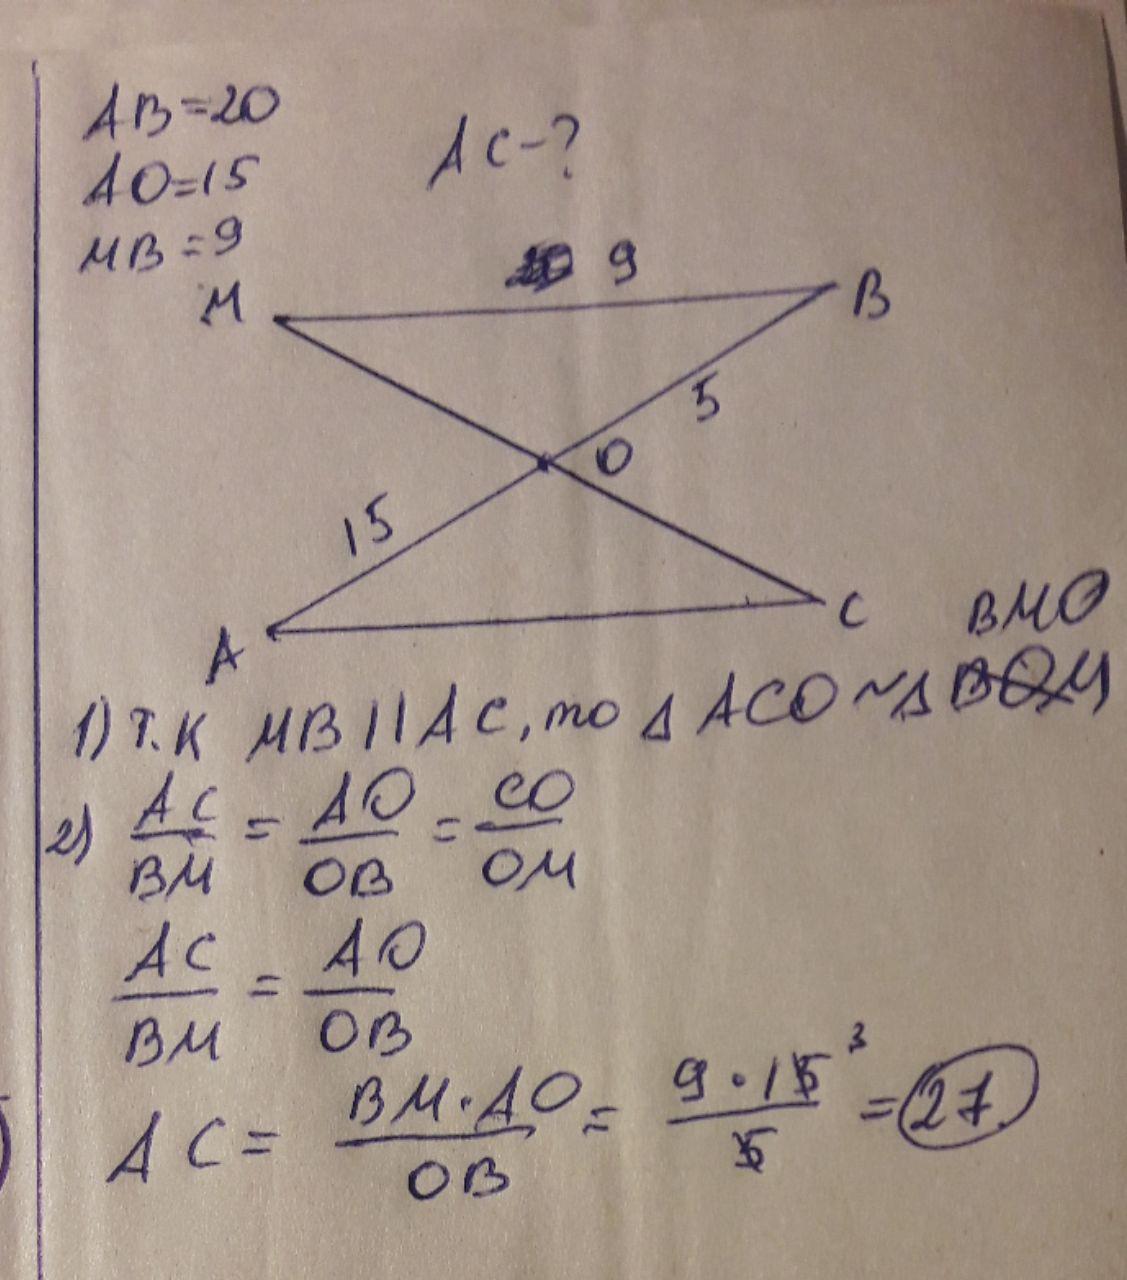 AB=20
AO=15
MB=9
AC-?
9
M
B
5
O
15
A
C
BMO
1) Т.К MB||AC, то Δ ACO ~ Δ BOM
2) AC/BM = AO/OB = CO/OM
AC/BM = AO/OB
AC = BM·AO/OB = 9·15/5 ³ = 27